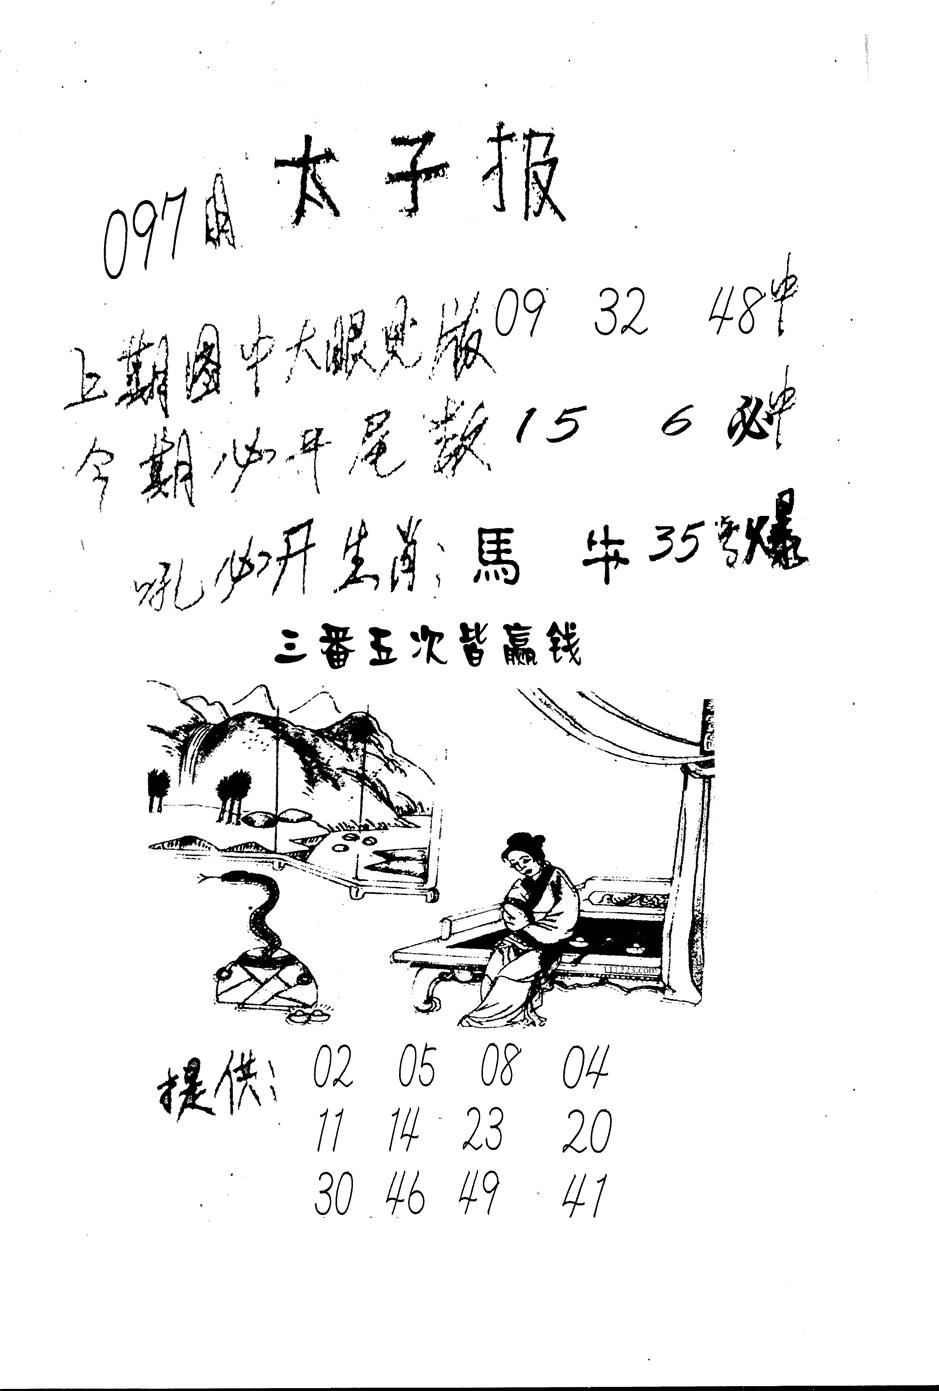 太子报
097期
上期图中大眼见版09 32 48中
今期必开尾数15 6 必中
吼必开生肖：馬 牛35号爆
三番五次皆赢钱
提供：02 05 08 04
11 14 23 20
30 46 49 41